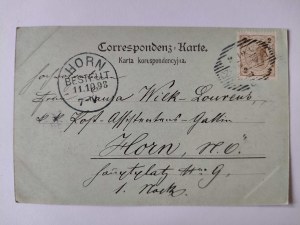 Correspondenz-Karte.
Karta korespondencyjna.
HORN
BESTELLT
11.10.98
7-V
Wick-Lourens
k. k. Post-Assistentens-Gattin
Horn, N. Ö.
Hauptplatz 9,
1. Stock